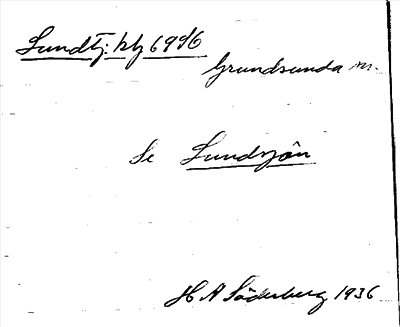 Lundtj: kbl 6996
Grundsunda sn.
Se Lundsjön
H A Söderberg 1936